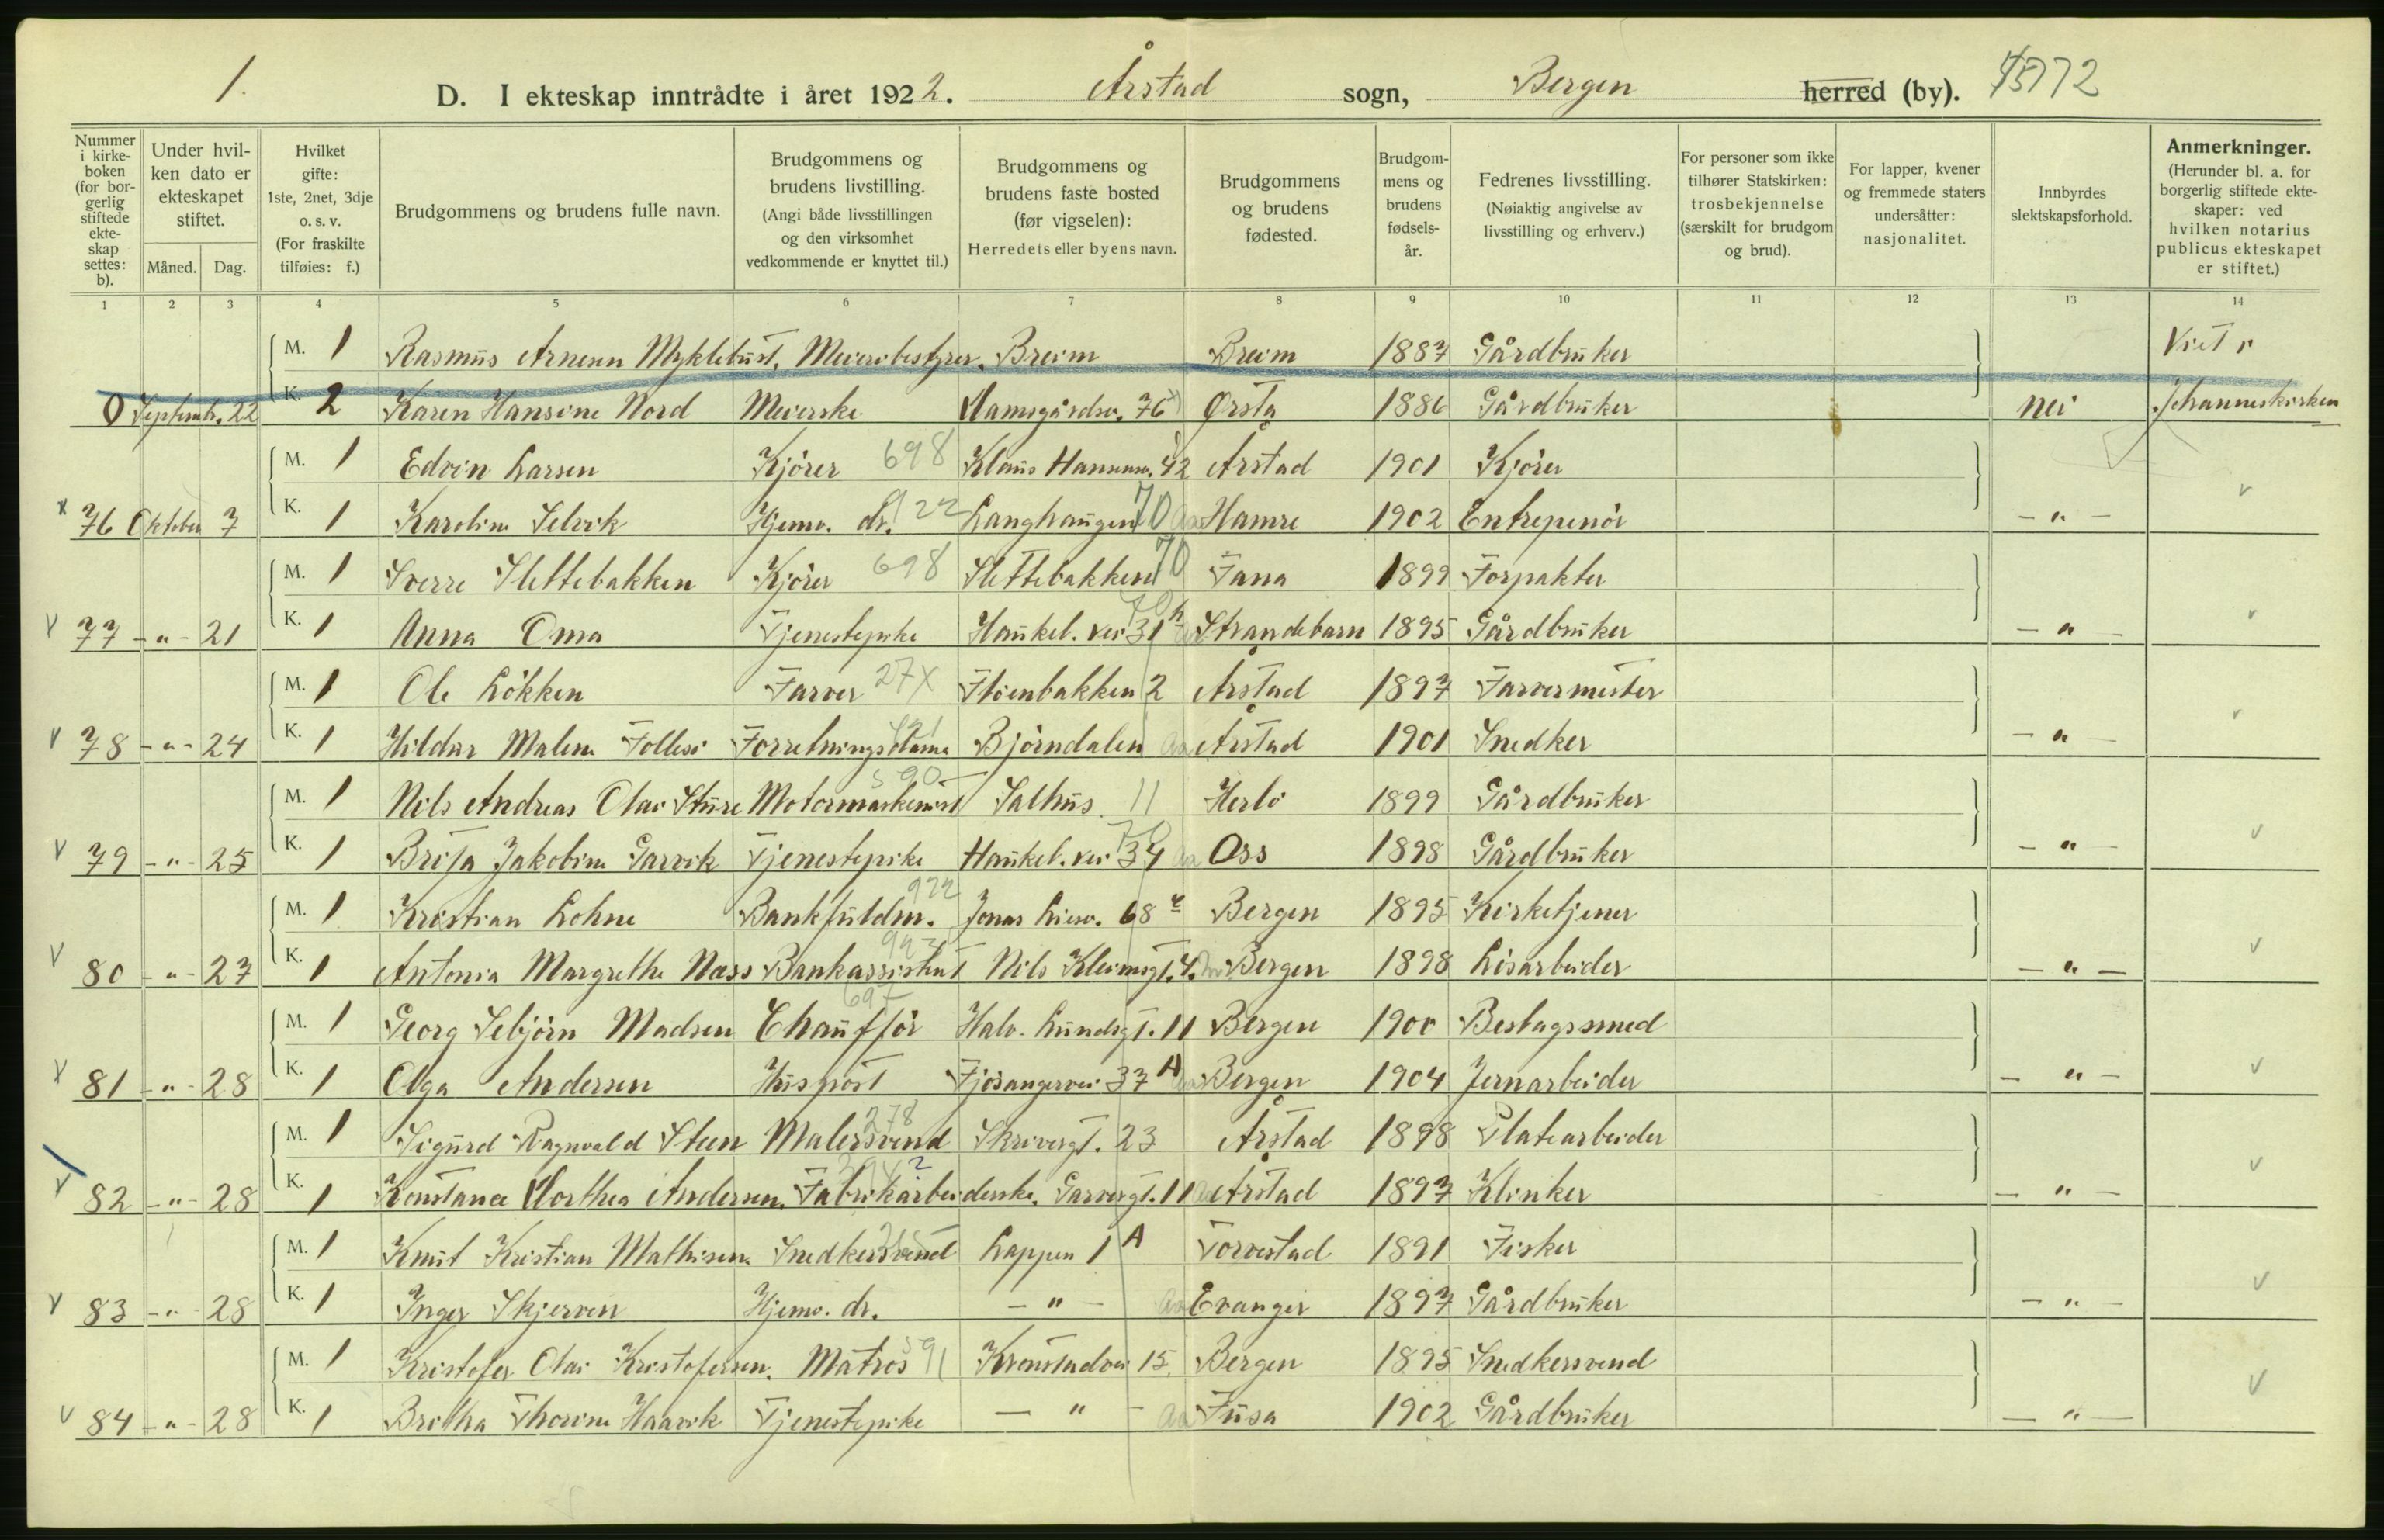 1. D. I ekteskap inntrådte i året 1922. Årstad sogn, Bergen herred (by). 45772
Nummer i kirkeboken (for borgerlig stiftede ekteskap settes: b).
Under hvilken dato er ekteskapet stiftet.
Måned. Dag.
Hvilket gifte: 1ste, 2net, 3dje o. s. v. (For fraskilte tilføies: f.)
Brudgommens og brudens fulle navn.
Brudgommens og brudens livstilling. (Angi både livsstillingen og den virksomhet vedkommende er knyttet til.)
Brudgommens og brudens faste bosted (før vigselen): Herredets eller byens navn.
Brudgommens og brudens fødested.
Brudgommens og brudens fødselsår.
Fedrenes livsstilling. (Nøiaktig angivelse av livsstilling og erhverv.)
For personer som ikke tilhører Statskirken: trosbekjennelse (særskilt for brudgom og brud).
For lapper, kvener og fremmede staters undersåtter: nasjonalitet.
Innbyrdes slektskapsforhold.
Anmerkninger. (Herunder bl. a. for borgerlig stiftede ekteskaper: ved hvilken notarius publicus ekteskapet er stiftet.)
1 2 3 4 5 6 7 8 9 10 11 12 13 14
M. 1 Rasmus Arnesen Myklebust, Meieribestyrer, Breim Breim 1887 Gårdbruker Viet i
0 Septemb. 22 K. 2 Karen Hansine Nord Meierske Damsgårdsv. 76 Ørsta 1886 Gårdbruker nei Johanneskirken
M. 1 Edvin Larsen Kjörer 698 Klaus Hanssensv. 42 Årstad 1901 Kjörer
76 Oktober 7 K. 1 Karoline Selvik Hjemv. dr. 922 Langhaugen 70 Aa Hamre 1902 Entrepenör - " -
M. 1 Sverre Slettebakken Kjörer 698 Slettebakken 70 Fana 1899 Forpakter
77 - " - 21 K. 1 Anna Oma Tjenestepike Haukel. vei 31 b Strandebarm 1895 Gårdbruker - " -
M. 1 Ole Lökken Farver 27X Flöenbakken 2 Årstad 1897 Farvermester
78 - " - 24 K. 1 Hildur Malene Follesö Forretningsdame Björndalen Aa Årstad 1901 Snedker - " -
M. 1 Nils Andreas Olai Sture Motormaskinist 590 Salhus 11 Herlö 1899 Gårdbruker
79 - " - 25 K. 1 Brita Jakobine Garvik Tjenestepike Haukel. vei 34 70 Aa Oss 1898 Gårdbruker - " -
M. 1 Kristian Lohne Bankfuldm. 922 Jonas Liesv. 68 Bergen 1895 Kirketjener
80 - " - 27 K. 1 Antonia Margrethe Næss Bankassistent Nils Kleimsgt. 4. Bergen 1898 Lösarbeider - " -
M. 1 Georg Sebjörn Madsen Chaufför 697 Halv. Lundsgt. 11 Bergen 1900 Beslagssmed
81 - " - 28 K. 1 Olga Andersen Huspost Fjösangervei 37 A Aa Bergen 1904 Jernarbeider - " -
M. 1 Sigurd Ragnvald Steen Malersvend 278 Skrivergt. 23 Årstad 1898 Platearbeider
82 - " - 28 K. 1 Konstance Dorthea Andersen. Fabrikarbeiderske. Garvergt. 11 Årstad 1897 Klinker - " -
M. 1 Knut Kristian Mathisen Snedkersvend Lappen 1 A Torvestad 1891 Fisker
83 - " - 28 K. 1 Inger Skjerven Hjemv. dr. - " - Aa Evanger 1897 Gårdbruker - " -
M. 1 Kristofer Olai Kristofersen. Matros 591 Kronstadvei 15. Bergen 1895 Snedkersvend
84 - " - 28 K. 1 Britha Thorine Haavik Tjenestepike - " - Aa Fusa 1902 Gårdbruker - " -